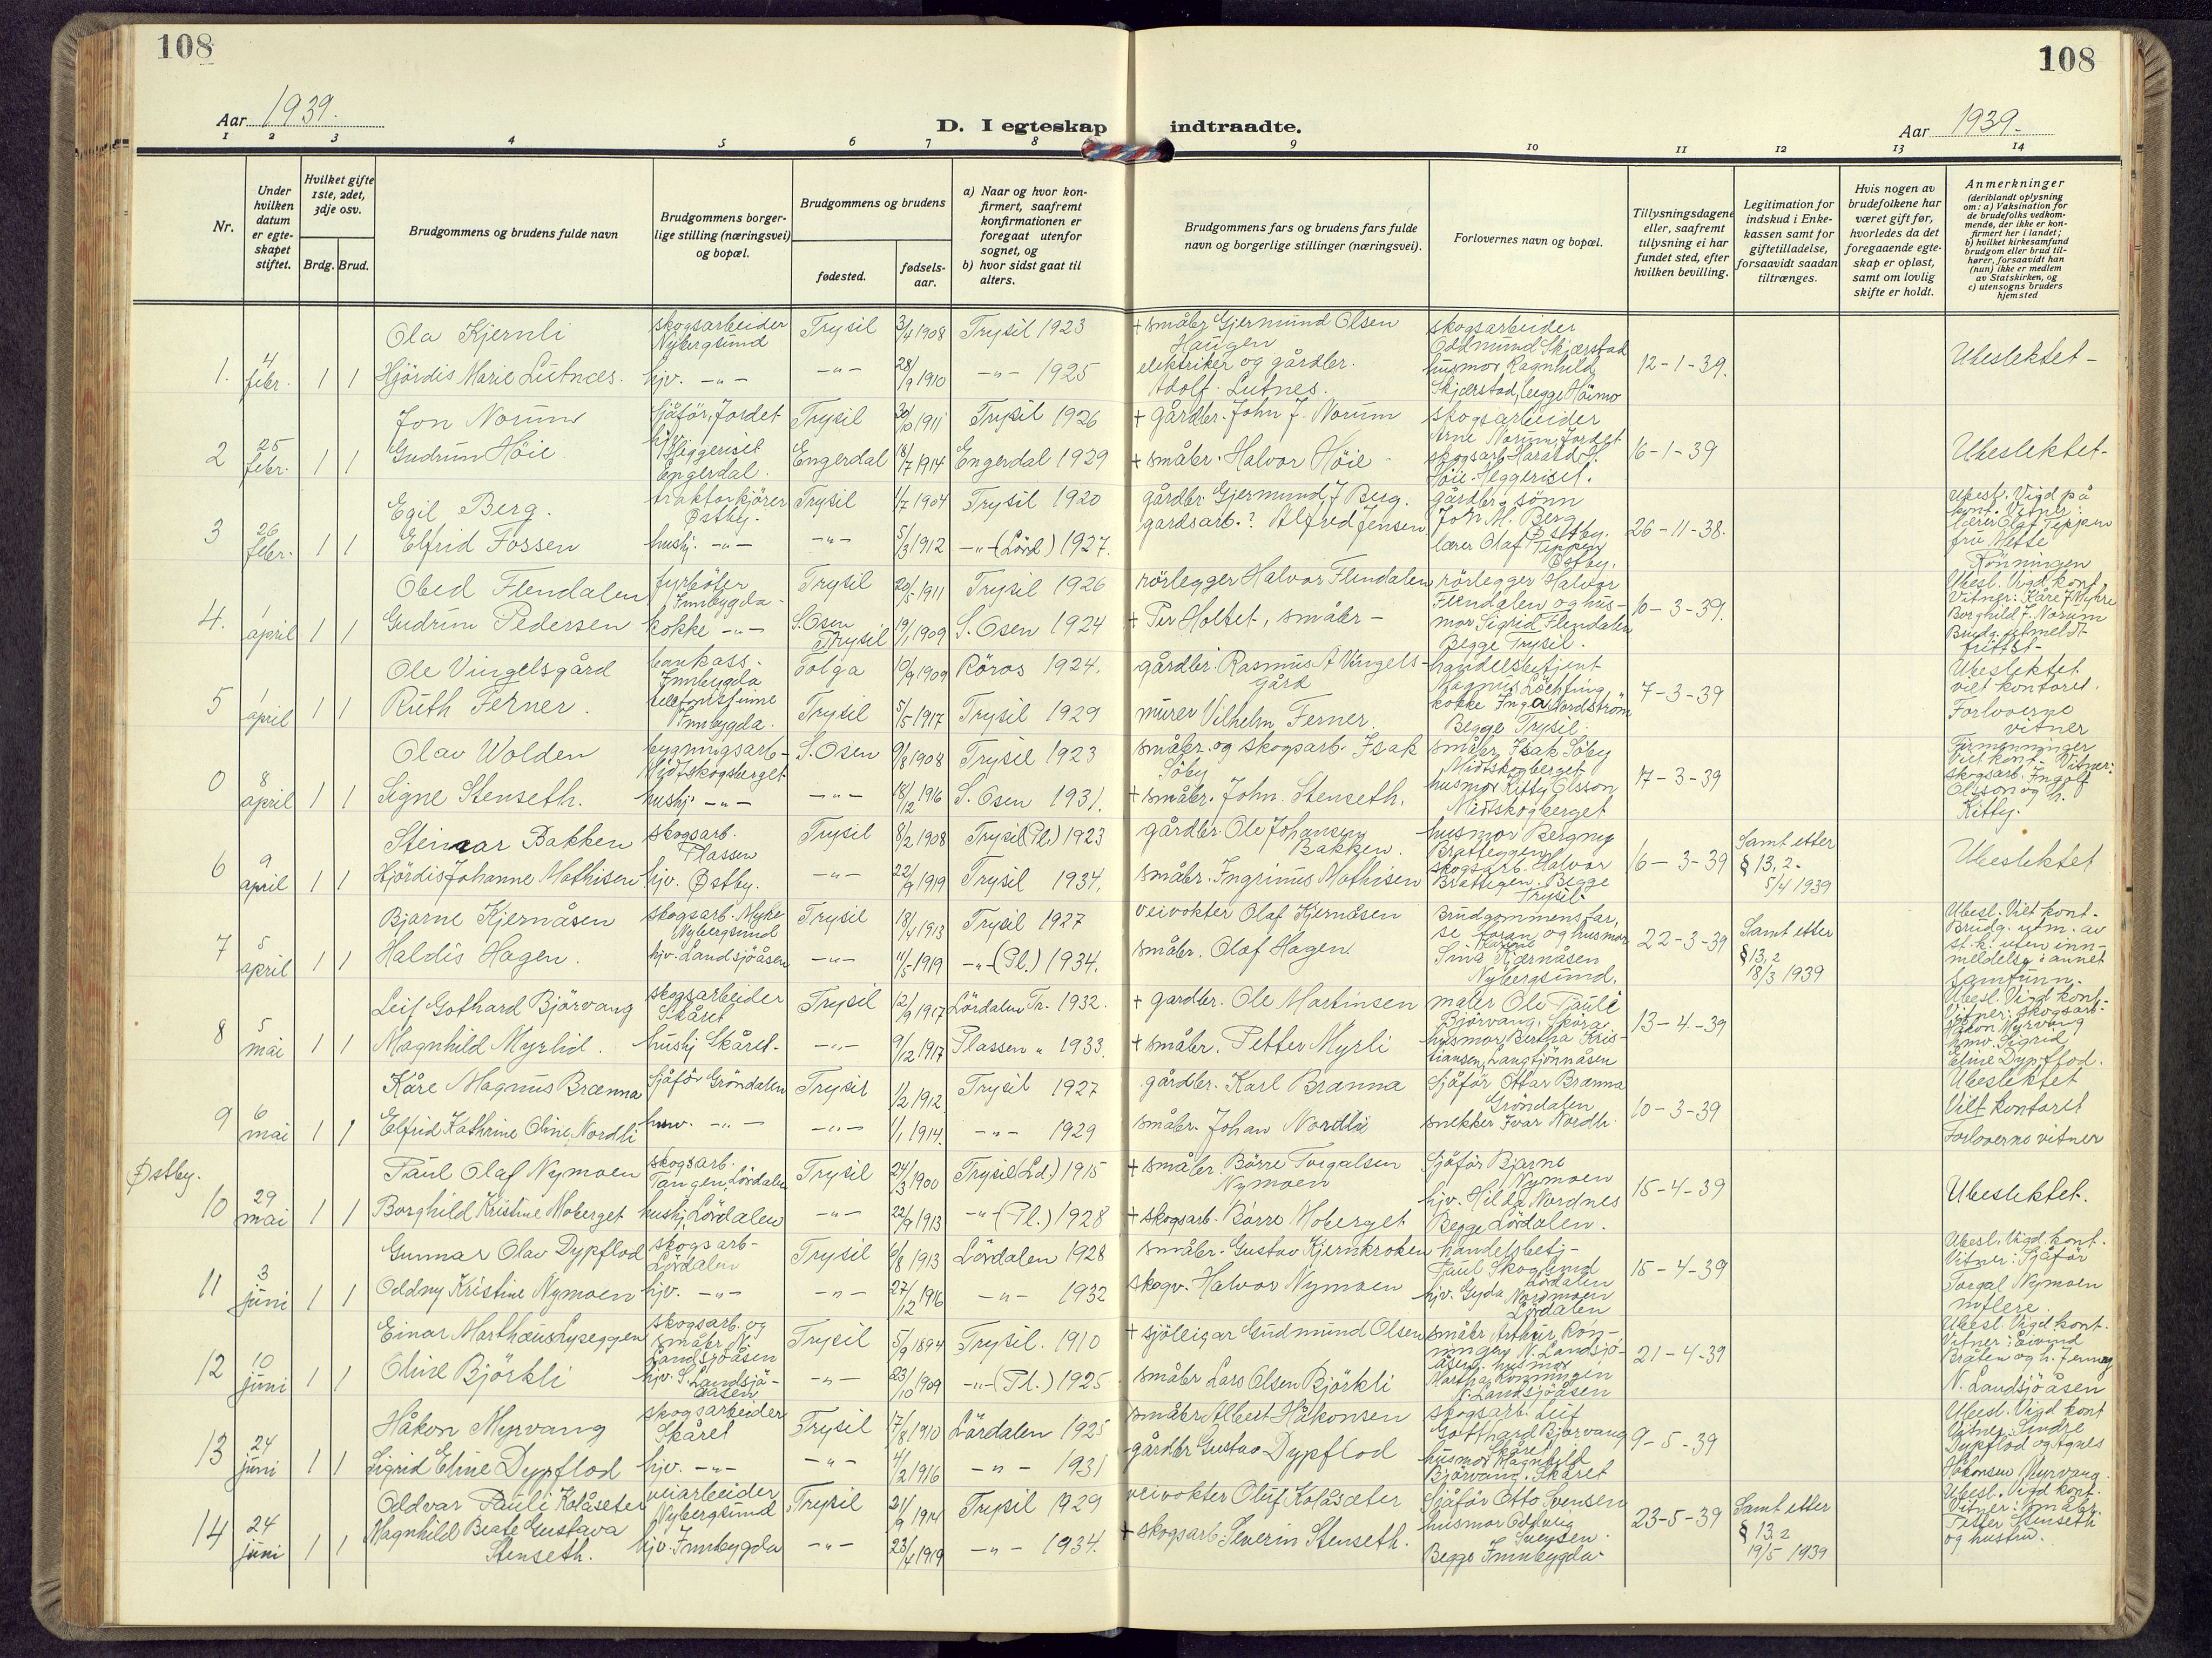 108
108
Aar 1939.
D. I egteskap indtraadte.
Aar 1939.
1 2 3 4 5 6 7 8 9 10 11 12 13 14
Nr.
Under
hvilken
datum
er egte-
skapet
stiftet.
Hvilket gifte
1ste, 2det,
3dje osv.
Brdg. Brud.
Brudgommens og brudens fulde navn
Brudgommens borger-
lige stilling (næringsvei)
og bopæl.
Brudgommens og brudens
fødested.
fødsels-
aar.
a) Naar og hvor kon-
firmert, saafremt
konfirmationen er
foregaat utenfor
sognet, og
b) hvor sidst gaat til
alters.
Brudgommens fars og brudens fars fulde
navn og borgerlige stillinger (næringsvei).
Forlovernes navn og bopæl.
Tillysningsdagene
eller, saafremt
tillysning ei har
fundet sted, efter
hvilken bevilling.
Legitimation for
indskud i Enke-
kassen samt for
giftetilladelse,
forsaavidt saadan
tiltrænges.
Hvis nogen av
brudefolkene har
været gift før,
hvorledes da det
foregaaende egte-
skap er opløst,
samt om lovlig
skifte er holdt.
Anmerkninger
(deriblandt oplysning
om: a) Vaksination for
de brudefolks vedkom-
mende, der ikke er kon-
firmert her i landet;
b) hvilket kirkesamfund
brudgom eller brud til-
hører, forsaavidt han
(hun) ikke er medlem
av Statskirken, og
c) utensogns bruders
hjemsted
1. 4 febr. 1 1
Ola Kjernli
Hjördis Marie Lutnæs.
skogsarbeider
Nybergsund
hjv. -"-
Trysil 3/4 1908 Trysil 1923
-"- 28/9 1910 -"- 1925
+ småbr. Gjermund Olsen
Haugen
elektriker og gårdbr.
Adolf Lutnes.
skogsarbeider
Oddmund Skjærstad
husmor Ragnhild
Skjærstad, begge Höimo
12-1-39.
Ubeslektet-
2 25 febr. 1 1
Jon Norum
Gudrun Höie
Sjåför, Jordet
Heggeriset
Engerdal.
Trysil 30/10 1911 Trysil 1926
Engerdal 18/7 1914 Engerdal 1929
+ gårdbr. John J. Norum
+ småbr. Halvor Höie
skogsarbeider
Arne Norum, Jordet
skogsarb. Harald H.
Höie. Heggeriset.
16-1-39
Ubeslektet-
3 26 febr. 1 1
Egil Berg.
Elfrid Fossen
traktorkjörer
Østby.
hushj. -"-
Trysil 1/7 1904 Trysil 1920
-"- 5/3 1912 -"- (Lörd) 1927.
gårdbr. Gjermund J Berg.
gardsarb.? Alfred Jensen
gårdbr. sönn
Jon M. Berg
Østby.
lærer Olaf Teppen
Østby.
26-11-38.
Ubesl. Vigd på
kont. Vitner:
lærer Olaf Teppen
fru Mette
Rönningen
4. 1 april 1 1
Obed Flendalen
Gudrun Pedersen
fyrböter
Innbygda-
kokke -"-
Trysil 20/5 1911 Trysil 1926
S. Osen
Trysil 19/1 1909 S. Osen 1924
rörlegger Halvor Flendalen
+ Per Holtet, småbr-
rörlegger Halvor
Flendalen og hus-
mor Sigrid Flendalen
Begge Trysil.
10-3-39.
Ubesl. Vigd. kont.
Vitner: Kåre J Myhre
Borghild J. Norum
Brudg. utmeldt
5 1 april 1 1
Ole Vingelsgård
Ruth Ferner.
bankass.
Innbygda
Innbygda.
Tolga 10/9 1909 Röros 1924.
Trysil 5/5 1917 Trysil 1929
gårdbr. Rasmus A Vingels-
gård
murer Vilhelm Ferner.
handelsbetjent
kokke Inga Nordström
Begge Trysil.
7-3-39
Ubeslektet
viet kontoret.
Forloverne
vitner
0 8 april 1 1
Olav Wolden
Signe Stenseth.
bygningsarb-
Midtskogsberget
hushj. -"-
S. Osen 9/8 1908 Trysil 1923
-"- 18/12 1916 S. Osen 1931.
småbr. og skogsarb. Isak
Söby
+ småbr. John Stenseth.
småbr. Isak Söby
Midtskogberget
husmor Kitty Olsson
Midtskogberget
17-3-39
Tirmenninger
Viet kont. Vitner:
skogsarb. Ingolf
Olsson og h.
Kitty.
6 9 april 1 1
Steinar Bakken
Hjördis Johanne Mathisen
skogsarb.
Plassen
hjv. Østby.
Trysil 8/2 1908 Trysil (Pl.) 1923
-"- 22/9 1919 Trysil 1934.
gårdbr. Ole Johansen
Bakken.
småbr. Ingrinus Mathisen
husmor Bergny
Bratteggen
skogsarb. Halvor
Bratteggen. Begge
Trysil.
16-3-39
Samt etter
§ 13, 2-
5/4 1939
Ubeslektet
7 5 april 1 1
Bjarne Kjernåsen
Haldis Hagen.
skogsarb. Myhre
Nybergsund
hjv. Landsjöåsen
Trysil 18/4 1913 Trysil 1927
-"- 11/5 1919 -"- (Pl.) 1934.
veivokter Olaf Kjernåsen
småbr. Olaf Hagen
Brudgommens far,
se foran og husmor
Kjernåsen
Nybergsund.
22-3-39
Samt etter
§ 13, 2
18/3 1939
Ubesl. Viet kont-
Brudg. utm. av
st. k. uten inn-
meldelse i annet
samfunn.
8 5 mai 1 1
Leif Gothard Björvang
Magnhild Myrlid.
skogsarbeider
Skåret
hushj Skåret-
Trysil 12/9 1917 Lördalen Tr. 1932.
-"- 9/12 1917 Plassen " 1933.
+ gardbr. Ole Martinsen
+ småbr. Petter Myrli
maler Ole Pauli
Björvang, Sköra
husmor Bertha Kris-
tiansen, Langtjönnåsen
13-4-39
Ubesl. Vigd kont.
Vitner: skogsarb-
Håkon Myrvang
hmv. Sigrid
Eline Dypflod.
9 6 mai 1 1
Kåre Magnus Brænna
Elfrid Kathrine Oline Nordli
Sjåför Gröndalen
husv. -"-
Trysil 1/2 1912 Trysil 1927
-"- 1/1 1914. -"- 1929
gårdbr. Karl Brænna
småbr. Johan Nordli
Sjåför Ottar Brænna
Gröndalen
snekker Ivar Nordli
10-3-39
Ubeslektet
Vilt kontoret
Forloverne vitner
Østby.
10 29 mai 1 1
Paul Olaf Nymoen
Borghild Kristine Moberget
skogsarb.
Tangen, Lördalen
hushj. Lördalen
Trysil 24/3 1900 Trysil (Ld.) 1915
-"- 22/9 1913 -"- (Pl.) 1928
+ småbr. Börre Torgalsen
Nymoen
+ skogsarb. Börre Moberget
Sjåför Bjarne
Nymoen
hjv. Hilda Nordnes
Begge Lördalen.
15-4-39
Ubeslektet.
11 3 juni 1 1
Gunnar Olav Dypflod
Oddny Kristine Nymoen
skogsarb-
Lördalen
hjv. -"-
Trysil 6/8 1913 Lördalen 1928
-"- 27/12 1916 -"- 1932
småbr. Gustav Kjernkroken
skogv. Halvor Nymoen
handelsbetj-
Paul Skoglund
Lördalen
hjv. Gyda Nordmoen
Lördalen
15-4-39
Ubesl. Vigd. kont.
Vitner: Sjåför
Torgal Nymoen
m flere.
12 10 juni 1 1
Einar Marthæus Lyseggen
Oline Björkli
skogsarb. og
småbr. N.
Landsjöåsen
hjv. S. Landsjö-
åsen
Trysil 5/9 1894 Trysil. 1910
-"- 23/10 1909 -"- (Pl.) 1925
+ sjöleigar Gudmund Olsen
småbr Lars Olsen Björkli
småbr Arthur Rön-
ningen N. Landsjö-
åsen. husmor
Martha Rönningen
N. Landsjöåsen
21-4-39
Ubesl. Vigd kont.
Vitner: Eivind
Bråten og h. Jenny
N. Landsjöåsen
13 24 juni 1 1
Håkon Myrvang
Sigrid Eline Dypflod
skogsarbeider
Skåret
hjv. -"-
Trysil 17/8 1910 Lördalen 1925
-"- 4/2 1916 -"- 1931
småbr. Albert Håkonsen
gårdbr Gustav Dypflod
skogsarb. Leif
Gotthard Björvang
Skåret
husmor Magnhild
Björvang. Skåret
9-5-39
Ubesl. Vigd kont
Vitner Sindre
Dypflod og Agnes
Håkonsen Myrvang.
14 24 juni 1 1
Oddvar Pauli Kolåseter
Magnhild Beate Gustava
Stenseth.
veiarbeider
Nybergsund
hjv. Innbygda
Trysil 21/9 1914 Trysil 1929
-"- 23/4 1919 -"- 1934.
veivokter Oluf Kolåsæter
+ skogsarb. Severin Stenseth.
Sjåför Otto Svensen
husmor Oddveig
Svensen.
Begge Innbygda-
23-5-39
Samt etter
§ 13, 2
19/5 1939
Ubesl. Vigd kont.
Vitner: småbr.
Petter Stenseth
og hustru.